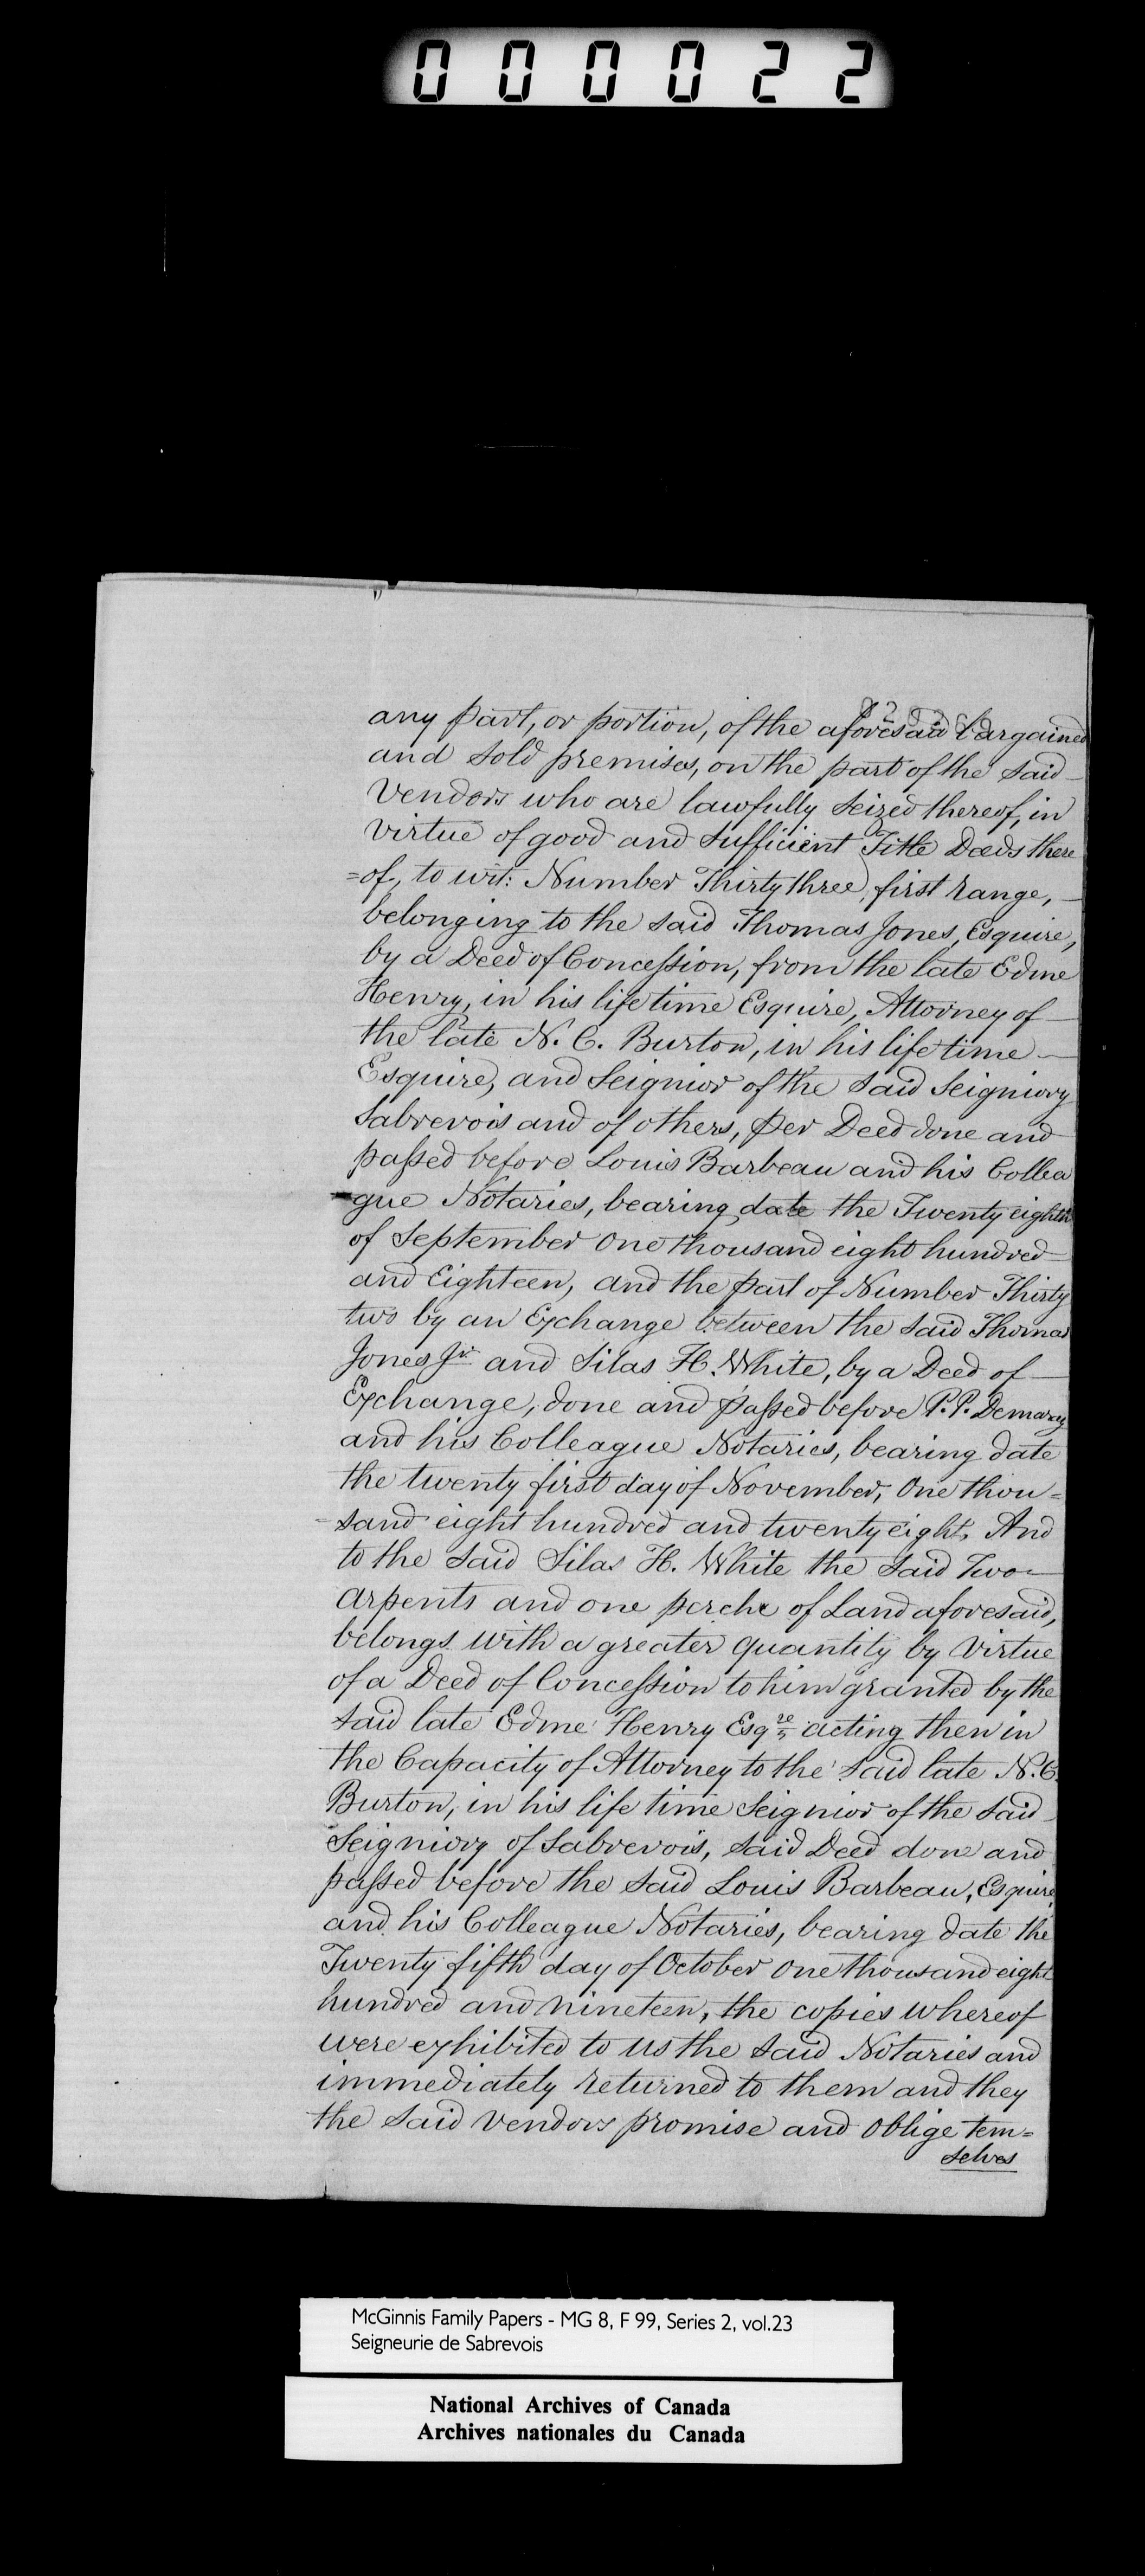 000022
any part, or portion, of the aforesaid bargained
and sold premises, on the part of the said
Vendors who are lawfully seized thereof, in
virtue of good and sufficient Title Deeds there
=of, to wit: Number Thirty three, first range,
belonging to the said Thomas Jones, Esquire,
by a Deed of Concession, from the late Edme
Henry, in his life time Esquire, Attorney of
the late N. C. Burton, in his life time
Esquire, and Seignior of the said Seigniory
Sabrevois and of others, per Deed done and
passed before Louis Barbeau and his Collea
gue Notaries, bearing date the Twenty eighth
of September one thousand eight hundred
and Eighteen, and the part of Number Thirty
two by an Exchange between the said Thomas
Jones Jr. and Silas H. White, by a Deed of
Exchange, done and passed before P. P. Demaray
and his Colleague Notaries, bearing date
the twenty first day of November, One thou=
=sand eight hundred and twenty eight, And
to the said Silas H. White the said Two
Arpents and one perche of Land aforesaid,
belongs with a greater quantity by Virtue
of a Deed of Concession to him granted by the
said late Edme Henry Esqre, acting then in
the Capacity of Attorney to the said late N. C.
Burton, in his life time Seignior of the said
Seigniory of Sabrevois, said Deed done and
passed before the said Louis Barbeau, Esquire,
and his Colleague Notaries, bearing date the
Twenty fifth day of October one thousand eight
hundred and nineteen, the copies whereof
were exhibited to us the said Notaries and
immediately returned to them and they
the said vendors promise and oblige tem=
selves
McGinnis Family Papers - MG 8, F 99, Series 2, vol.23
Seigneurie de Sabrevois
National Archives of Canada
Archives nationales du Canada